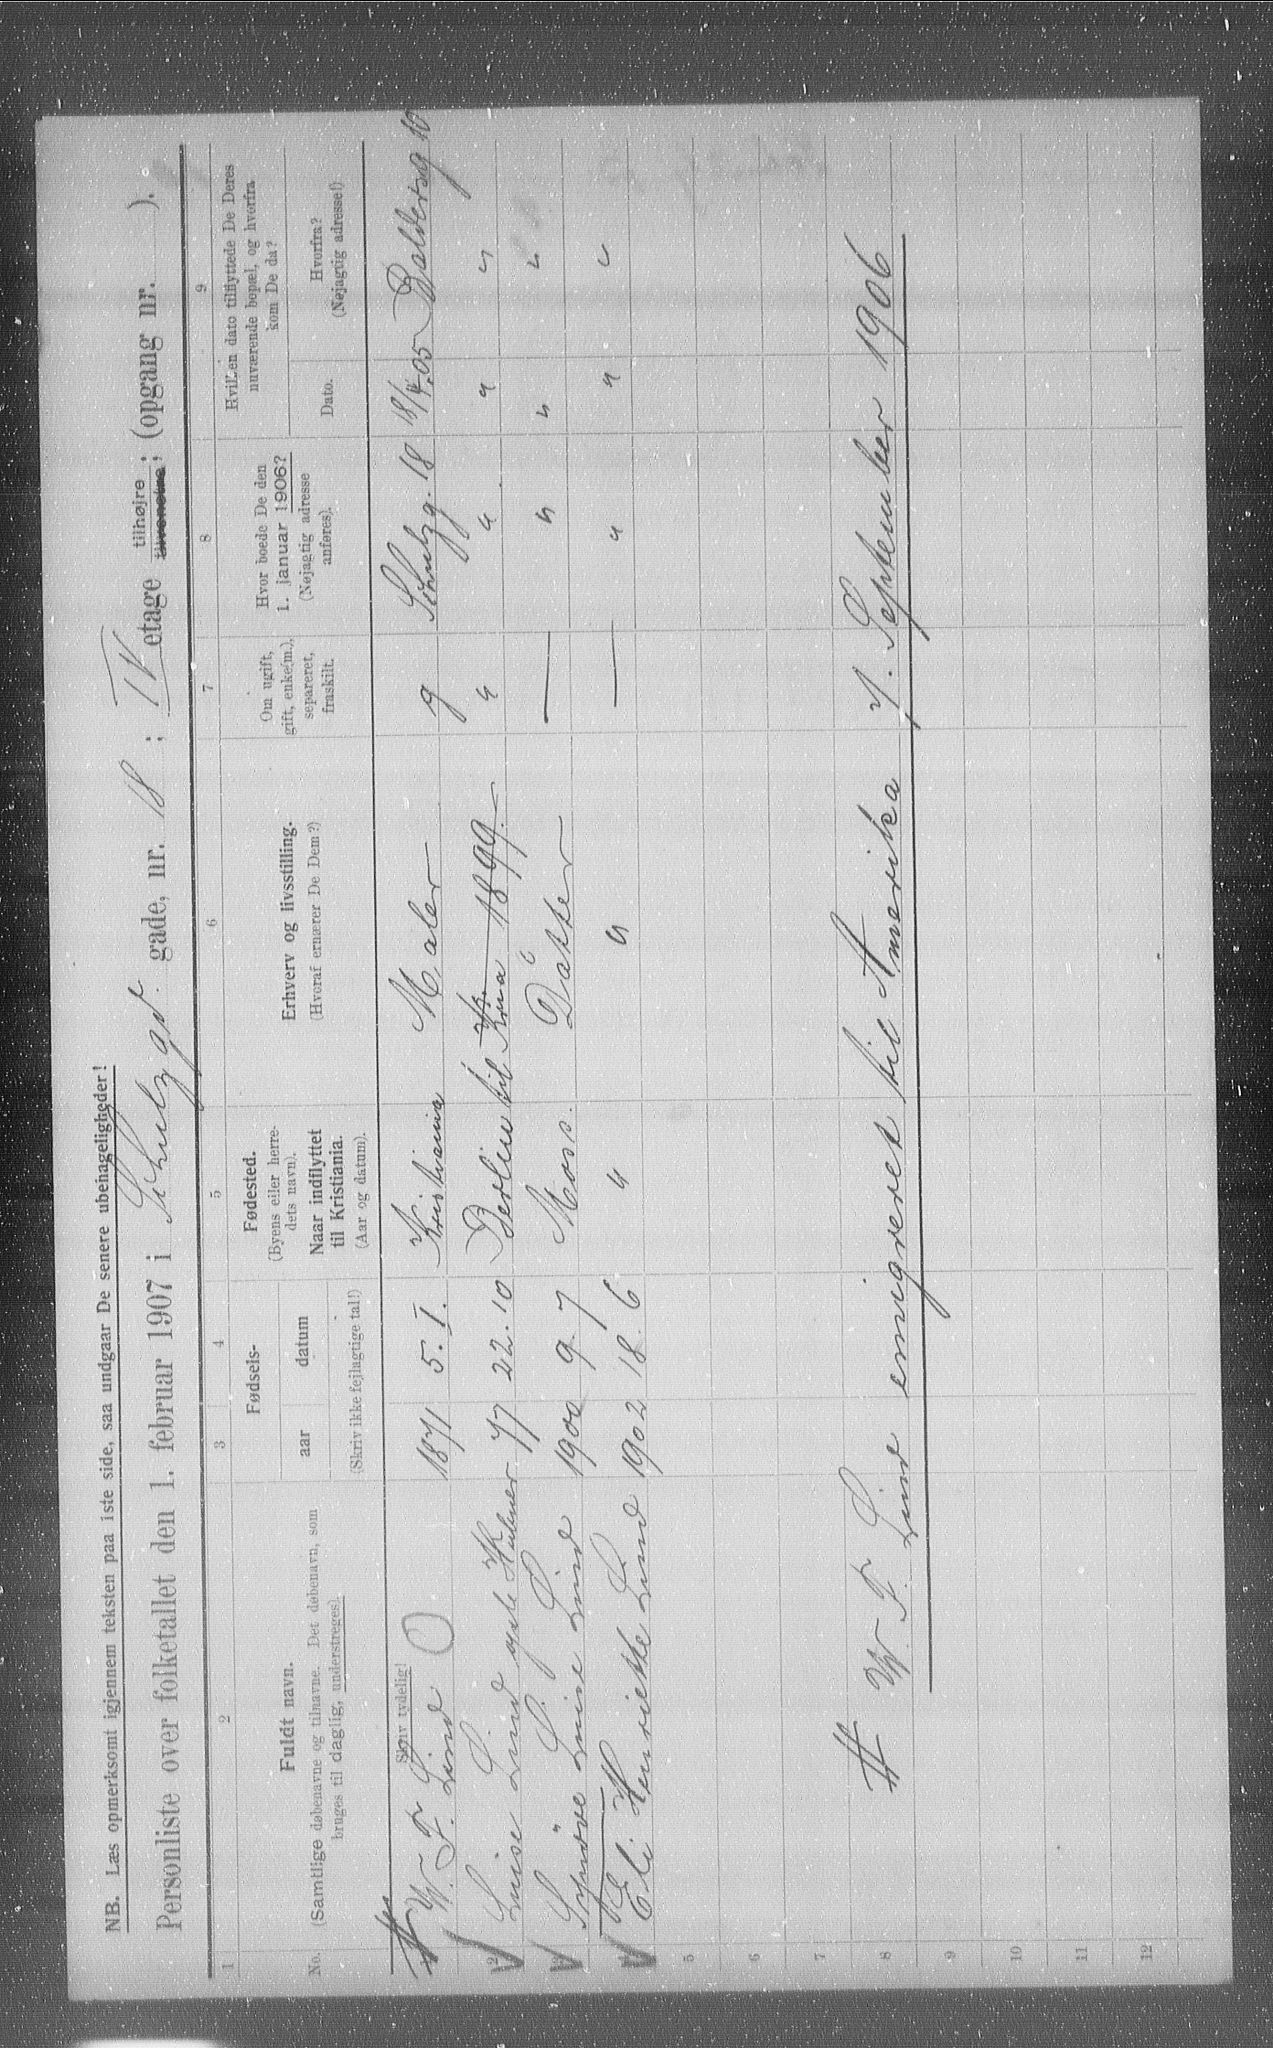 NB. Læs opmerksomt igjennem teksten paa 1ste side, saa undgaar De senere ubehageligheder!
Personliste over folketallet den 1. februar 1907 i Schulzgd. gade, nr. 18 ; IV etage tilhøjre tilvenstre ; (opgang nr. ).
1 2 3 4 5 6 7 8 9
No. Fuldt navn. (Samtlige døbenavne og tilnavne. Det døbenavn, som bruges til daglig, understreges). Skriv tydelig!
Fødsels- aar datum (Skriv ikke fejlagtige tal!)
Fødested. (Byens eller herredets navn). Naar indflyttet til Kristiania. (Aar og datum).
Erhverv og livsstilling. (Hvoraf ernærer De Dem?)
Om ugift, gift, enke(m.), separeret, fraskilt.
Hvor boede De den 1. januar 1906? (Nøjagtig adresse anføres).
Hvilken dato tilflyttede De Deres nuværende bopæl, og hvorfra kom De da? Dato. Hvorfra? (Nøjagtig adresse!)
# W. F. Lind 1871 5. I. Kristiania Maler g Schulzg. 18 18/4.05 Baldersg 10
2 Luise Lind 77 22.10 Berlin til Kria 1899. " " " "
Synöve Luise Lind 1900 9 7 Moss. Datter — " " "
Eli Henriette Lind 1902 18. 6 " " — " " "
5
6
7
8 # W. F. Lind emigreret til Amerika 7. September 1906
9
10
11
12